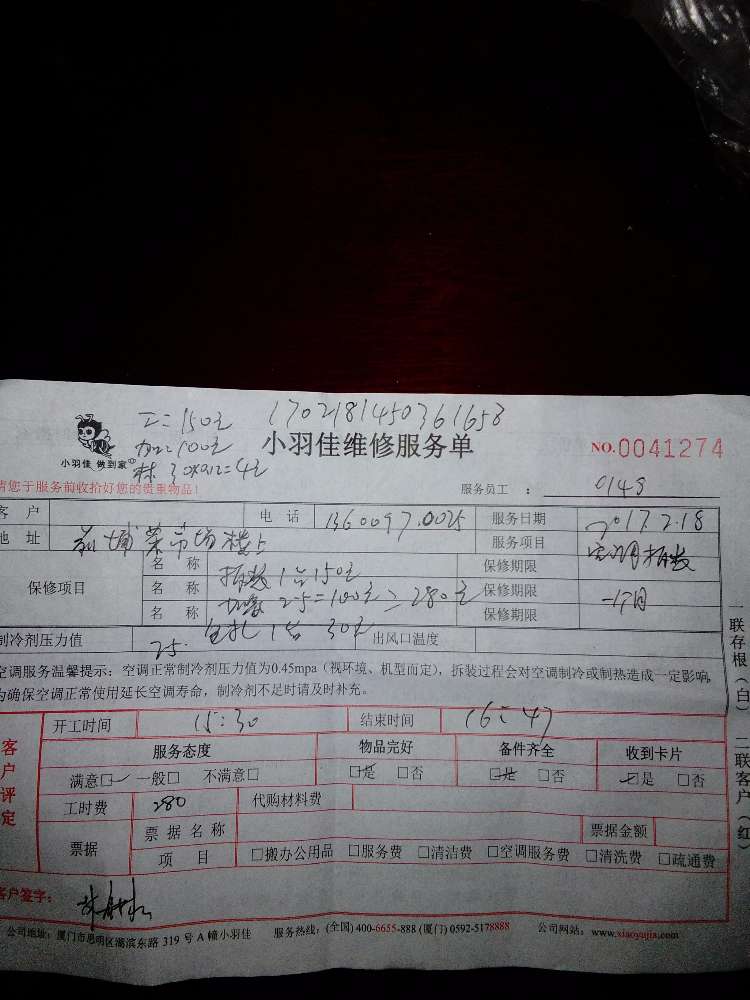 工=150元 1702181450361658
加=100元
材 30×0.12=4元
小羽佳 做到家
小羽佳维修服务单 NO.0041274
请您于服务前收拾好您的贵重物品! 服务员工 : 0148
客 户 电 话 1360097.0025 服务日期 2017.2.18
地 址 前埔菜市场楼上 服务项目 空调拆装
保修项目
名 称 拆装1台150元 保修期限
名 称 加氨2.5=100元=280元 保修期限 一个月
名 称 钻孔1台30元 保修期限
制冷剂压力值 25. 出风口温度
空调服务温馨提示:空调正常制冷剂压力值为0.45mpa(视环境、机型而定),拆装过程会对空调制冷或制热造成一定影响,
为确保空调正常使用延长空调寿命,制冷剂不足时请及时补充。
开工时间 15:30 结束时间 16:47
客户评定
服务态度 物品完好 备件齐全 收到卡片
满意□ 一般□ 不满意□ □是 □否 □是 □否 □是 □否
工时费 280 代购材料费
票据 票据名称 票据金额
项 目 □搬办公用品 □服务费 □清洁费 □空调服务费 □清洗费 □疏通费
客户签字:
公司地址:厦门市思明区湖滨东路 319 号 A 幢小羽佳 服务热线:(全国) 400-6655-888 (厦门) 0592-5178888 公司网站:www.xiaoyujia.com
一联存根(白) 二联客户(红)